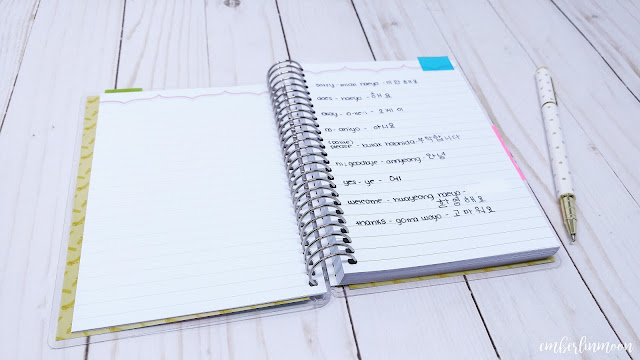 sorry - mian haeyo - 미안 해요
does - haeyo - 해요
okay - o-ke-i - 오케이
no - aniyo - 아니요
(polite)
please - butak habnida - 부탁합니다
hi, goodbye - annyeong 안녕
yes - ye - 예
welcome - hwayeong haeyo -
환영해요
thanks - goma woyo - 고마워요
emberlinmoon